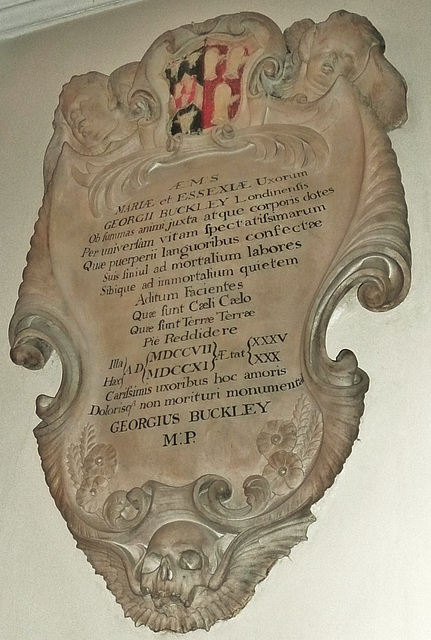 ÆMS
MARIÆ et ESSEXIÆ Uxorum
GEORGII BUCKLEY Londinensis
Ob summas animi juxta atque corporis dotes
Per universam vitam spectatissimarum
Quæ puerperii languoribus confectæ
Suis simul ad mortalium labores
Sibique ad immortalium quietem
Aditum Facientes
Quæ sunt Cæli Cælo
Quæ sunt Terræ Terræ
Pie Reddidere
Illa } A D { MDCCVII } Ætat { XXXV
Hæc } { MDCCXI } { XXX
Carissimis uxoribus hoc amoris
Dolorisq non morituri monumentu
GEORGIUS BUCKLEY
M.P.